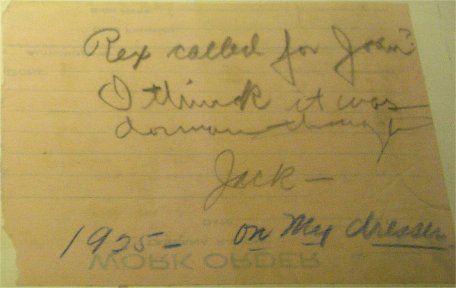 Rex called for Joan
I think it was
though
Jack —
1925 — on My dresser
WORK ORDER